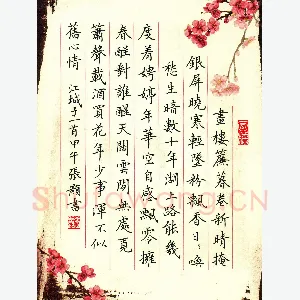 畫樓簾幕卷新晴掩
銀屏曉寒輕墜粉飄香日日喚
愁生暗數十年湖上路能幾
度着娉婷年華空自感飄零擁
春酲對誰醒天闊雲閒無處覓
簫聲載酒買花年少事渾不似
舊心情 江城子一首甲午張顥書